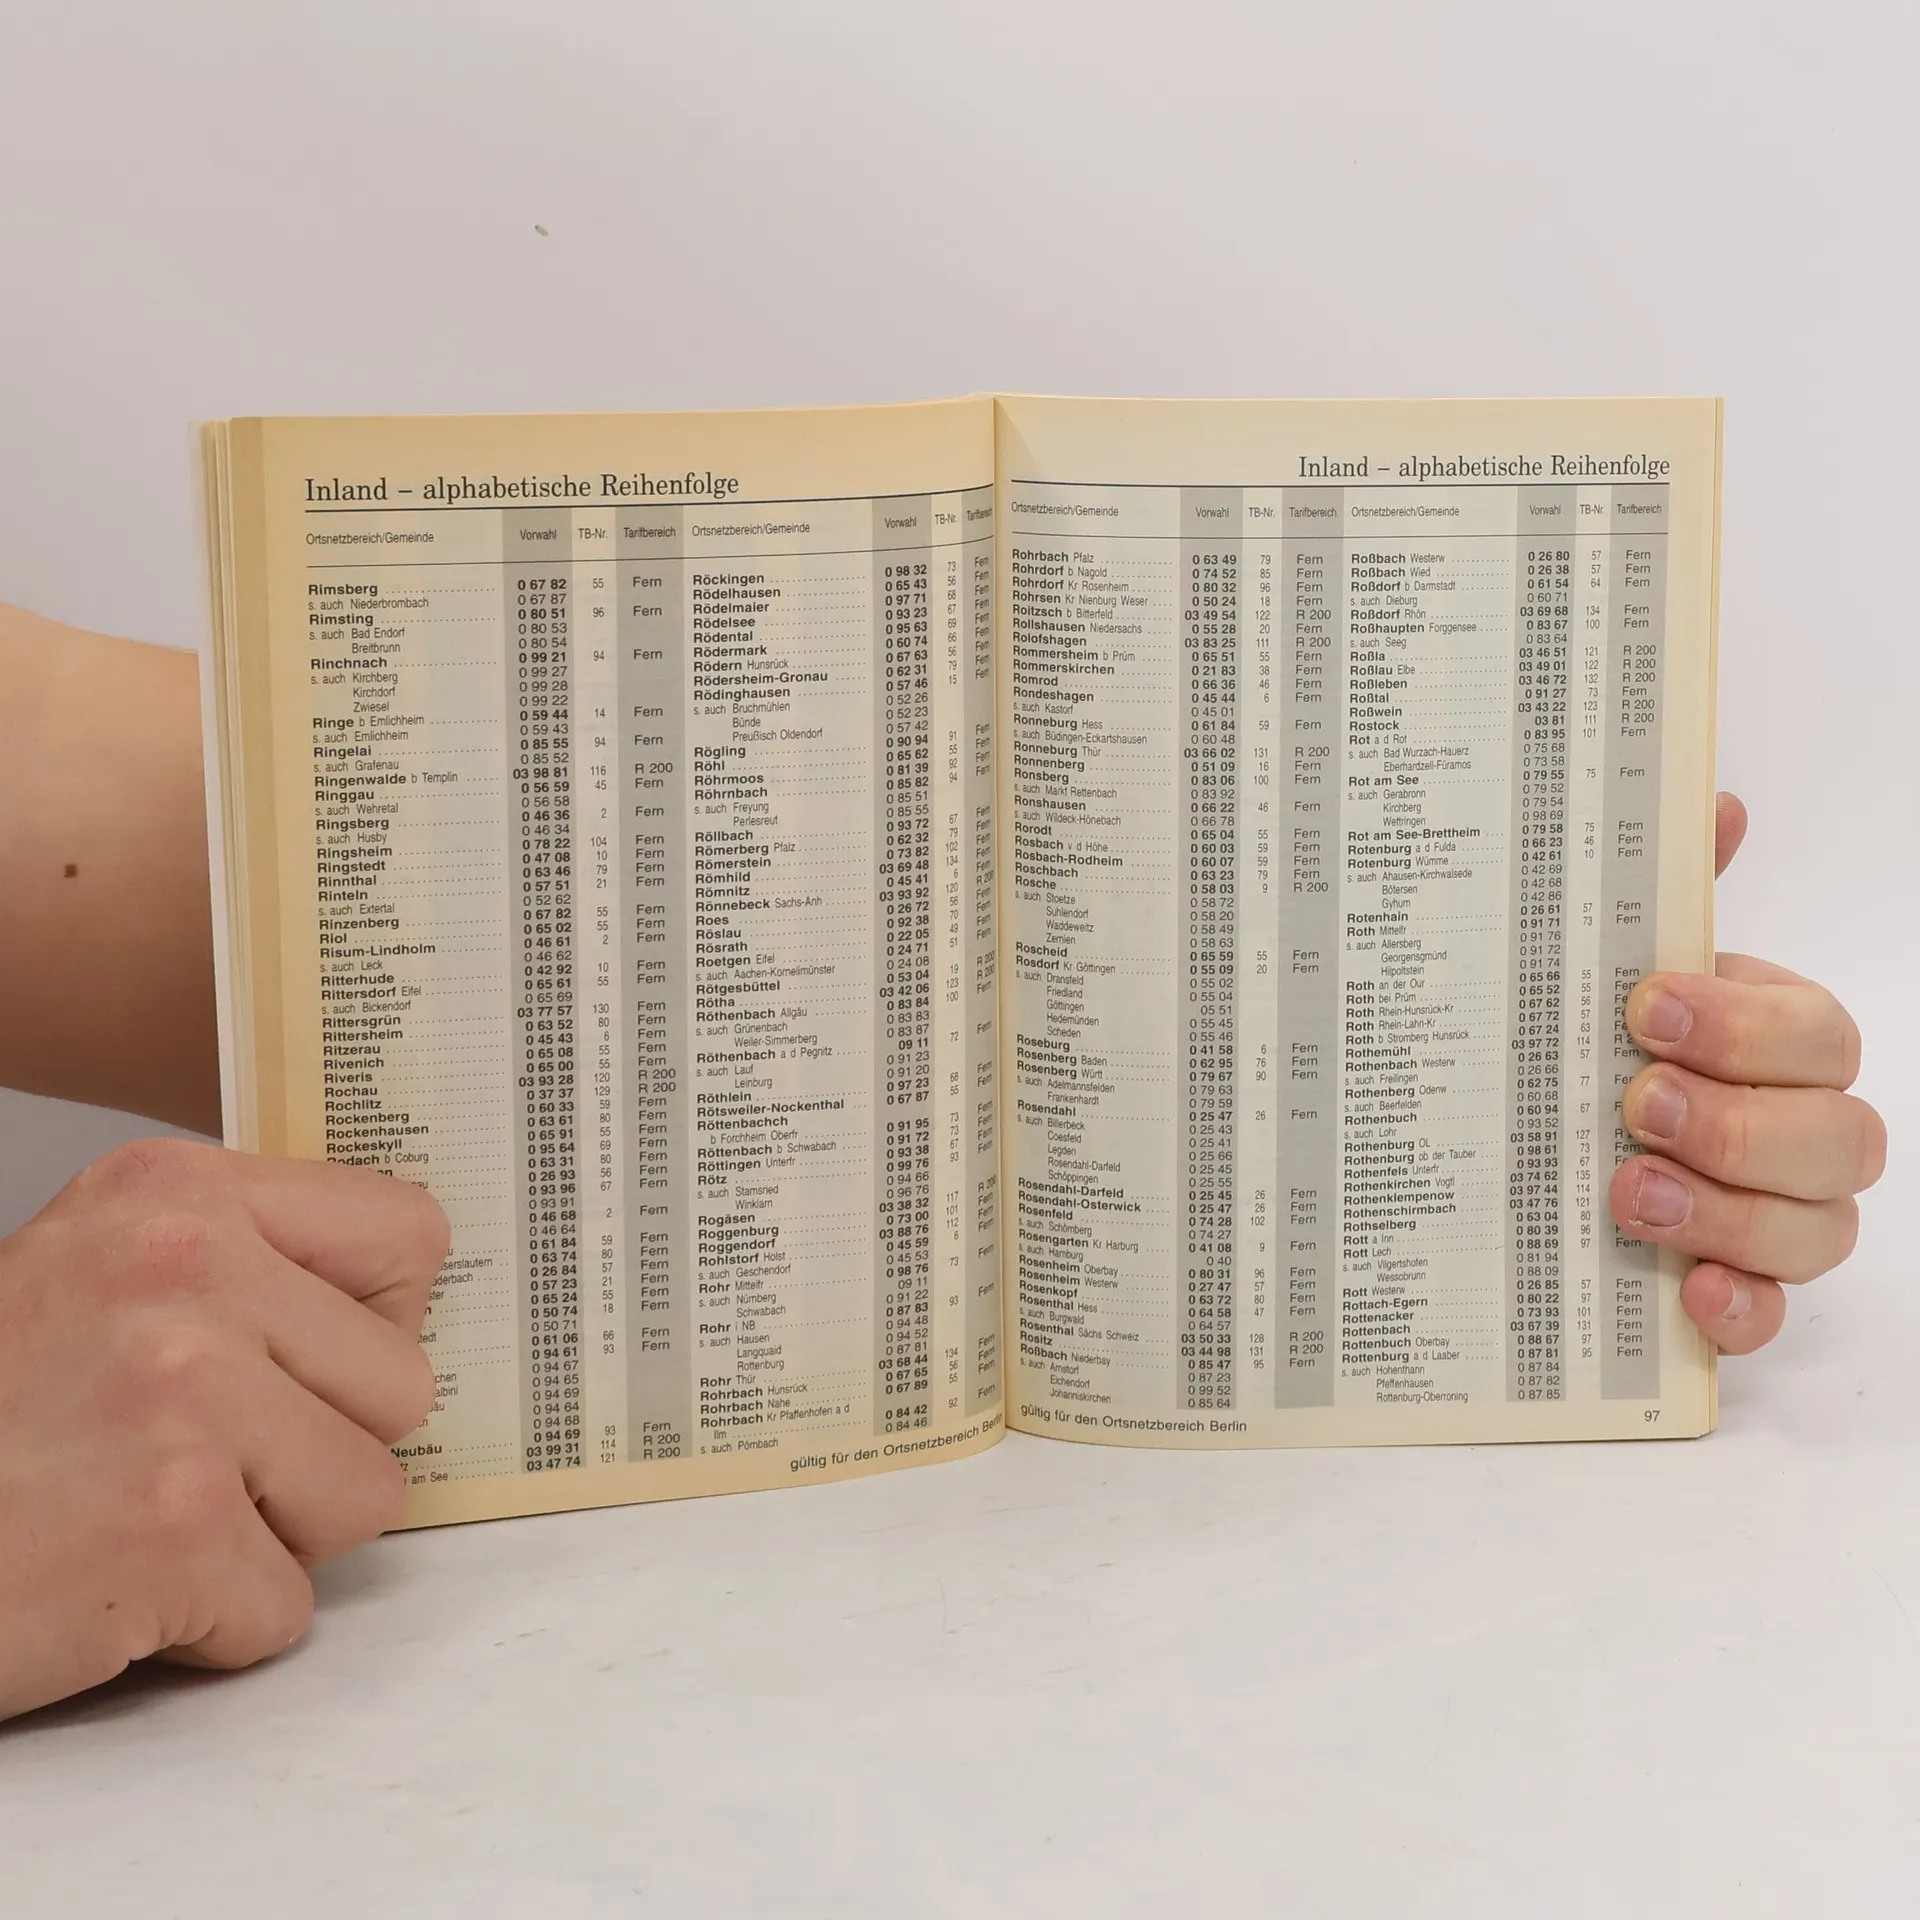 Inland – alphabetische Reihenfolge
Ortsnetzbereich/Gemeinde Vorwahl TB-Nr. Tarifbereich
Rimsberg 0 67 82 55 Fern
s. auch Niederbrombach 0 67 87
Rimsting 0 80 51 96 Fern
s. auch Bad Endorf 0 80 53
Breitbrunn 0 80 54
Rinchnach 0 99 21 94 Fern
s. auch Kirchberg 0 99 27
Kirchdorf 0 99 28
Zwiesel 0 99 22
Ringe b Emlichheim 0 59 44 14 Fern
s. auch Emlichheim 0 59 43
Ringelai 0 85 55 94 Fern
s. auch Grafenau 0 85 52
Ringenwalde b Templin 03 98 81 116 R 200
Ringgau 0 56 59 45 Fern
s. auch Wehretal 0 56 58
Ringsberg 0 46 36 2 Fern
s. auch Husby 0 46 34
Ringsheim 0 78 22 104 Fern
Ringstedt 0 47 08 10 Fern
Rinnthal 0 63 46 79 Fern
Rinteln 0 57 51 21 Fern
s. auch Extertal 0 52 62
Rinzenberg 0 67 82 55 Fern
Riol 0 65 02 55 Fern
Risum-Lindholm 0 46 61 2 Fern
s. auch Leck 0 46 62
Ritterhude 0 42 92 10 Fern
Rittersdorf Eifel 0 65 61 55 Fern
s. auch Bickendorf 0 65 69
Rittersgrün 03 77 57 130 Fern
Rittersheim 0 63 52 80 Fern
Ritzerau 0 45 43 6 Fern
Rivenich 0 65 08 55 Fern
Riveris 0 65 00 55 Fern
Rochau 03 93 28 120 R 200
Rochlitz 0 37 37 129 R 200
Rockenberg 0 60 33 59 Fern
Rockenhausen 0 63 61 80 Fern
Rockeskyll 0 65 91 55 Fern
Rodach b Coburg 0 95 64 69 Fern
0 63 31 80 Fern
0 26 93 56 Fern
0 93 96 67 Fern
0 93 91
0 46 68 2 Fern
0 46 64
0 61 84 59 Fern
0 63 74 80 Fern
0 26 84 57 Fern
0 57 23 21 Fern
0 65 24 55 Fern
0 50 74 18 Fern
0 50 71
0 61 06 66 Fern
0 94 61 93 Fern
0 94 67
0 94 65
0 94 69
0 94 64
0 94 68
Neubäu 0 94 69 93 Fern
03 99 31 114 R 200
am See 03 47 74 121 R 200
Ortsnetzbereich/Gemeinde Vorwahl TB-Nr. Tarifbereich
Röckingen 0 98 32 73 Fern
Rödelhausen 0 65 43 56 Fern
Rödelmaier 0 97 71 68 Fern
Rödelsee 0 93 23 67 Fern
Rödental 0 95 63 69 Fern
Rödermark 0 60 74 66 Fern
Rödern Hunsrück 0 67 63 56 Fern
Rödersheim-Gronau 0 62 31 79 Fern
Rödinghausen 0 57 46 15 Fern
s. auch Bruchmühlen 0 52 26
Bünde 0 52 23
Preußisch Oldendorf 0 57 42
Rögling 0 90 94 91 Fern
Röhl 0 65 62 55 Fern
Röhrmoos 0 81 39 92 Fern
Röhrnbach 0 85 82 94 Fern
s. auch Freyung 0 85 51
Perlesreut 0 85 55
Röllbach 0 93 72 67 Fern
Römerberg Pfalz 0 62 32 79 Fern
Römerstein 0 73 82 102 Fern
Römhild 03 69 48 134 Fern
Römnitz 0 45 41 6 Fern
Rönnebeck Sachs-Anh 03 93 92 120 R 200
Roes 0 26 72 56 Fern
Röslau 0 92 38 70 Fern
Rösrath 0 22 05 49 Fern
Roetgen Eifel 0 24 71 51 Fern
s. auch Aachen-Kornelimünster 0 24 08
Rötgesbüttel 0 53 04 19 Fern
Rötha 03 42 06 123 R 200
Röthenbach Allgäu 0 83 84 100 Fern
s. auch Grünenbach 0 83 83
Weiler-Simmerberg 0 83 87
Röthenbach a d Pegnitz 09 11 72 Fern
s. auch Lauf 0 91 23
Leinburg 0 91 20
Röthlein 0 97 23 68 Fern
Rötsweiler-Nockenthal 0 67 87 55 Fern
Röttenbachch
b Forchheim Oberfr 0 91 95 73 Fern
Röttenbach b Schwabach 0 91 72 73 Fern
Röttingen Unterfr 0 93 38 67 Fern
Rötz 0 99 76 93 Fern
s. auch Stamsried 0 94 66
Winklarn 0 96 76
Rogäsen 03 38 32 117 R 200
Roggenburg 0 73 00 101 Fern
Roggendorf 03 88 76 112 Fern
Rohlstorf Holst 0 45 59 6
s. auch Geschendorf 0 45 53
Rohr Mittelfr 0 98 76 73 Fern
s. auch Nürnberg 09 11
Schwabach 0 91 22
Rohr i NB 0 87 83 93 Fern
s. auch Hausen 0 94 48
Langquaid 0 94 52
Rottenburg 0 87 81
Rohr Thür 03 68 44 134 Fern
Rohrbach Hunsrück 0 67 65 56 Fern
Rohrbach Nahe 0 67 89 55 Fern
Rohrbach Kr Pfaffenhofen a d
Ilm 0 84 42 92 Fern
s. auch Pörnbach 0 84 46
gültig für den Ortsnetzbereich Berlin
Inland – alphabetische Reihenfolge
Ortsnetzbereich/Gemeinde Vorwahl TB-Nr. Tarifbereich
Rohrbach Pfalz 0 63 49 79 Fern
Rohrdorf b Nagold 0 74 52 85 Fern
Rohrdorf Kr Rosenheim 0 80 32 96 Fern
Rohrsen Kr Nienburg Weser 0 50 24 18 Fern
Roitzsch b Bitterfeld 03 49 54 122 R 200
Rollshausen Niedersachs 0 55 28 20 Fern
Rolofshagen 03 83 25 111 R 200
Rommersheim b Prüm 0 65 51 55 Fern
Rommerskirchen 0 21 83 38 Fern
Romrod 0 66 36 46 Fern
Rondeshagen 0 45 44 6 Fern
s. auch Kastorf 0 45 01
Ronneburg Hess 0 61 84 59 Fern
s. auch Büdingen-Eckartshausen 0 60 48
Ronneburg Thür 03 66 02 131 R 200
Ronnenberg 0 51 09 16 Fern
Ronsberg 0 83 06 100 Fern
s. auch Markt Rettenbach 0 83 92
Ronshausen 0 66 22 46 Fern
s. auch Wildeck-Hönebach 0 66 78
Rorodt 0 65 04 55 Fern
Rosbach v d Höhe 0 60 03 59 Fern
Rosbach-Rodheim 0 60 07 59 Fern
Roschbach 0 63 23 79 Fern
Rosche 0 58 03 9 R 200
s. auch Stoetze 0 58 72
Suhlendorf 0 58 20
Waddeweitz 0 58 49
Zernien 0 58 63
Roscheid 0 65 59 55 Fern
Rosdorf Kr Göttingen 0 55 09 20 Fern
s. auch Dransfeld 0 55 02
Friedland 0 55 04
Göttingen 05 51
Hedemünden 0 55 45
Scheden 0 55 46
Roseburg 0 41 58 6 Fern
Rosenberg Baden 0 62 95 76 Fern
Rosenberg Württ 0 79 67 90 Fern
s. auch Adelmannsfelden 0 79 63
Frankenhardt 0 79 59
Rosendahl 0 25 47 26 Fern
s. auch Billerbeck 0 25 43
Coesfeld 0 25 41
Legden 0 25 66
Rosendahl-Darfeld 0 25 45
Schöppingen 0 25 55
Rosendahl-Darfeld 0 25 45 26 Fern
Rosendahl-Osterwick 0 25 47 26 Fern
Rosenfeld 0 74 28 102 Fern
s. auch Schömberg 0 74 27
Rosengarten Kr Harburg 0 41 08 9 Fern
s. auch Hamburg 0 40
Rosenheim Oberbay 0 80 31 96 Fern
Rosenheim Westerw 0 27 47 57 Fern
Rosenkopf 0 63 72 80 Fern
Rosenthal Hess 0 64 58 47 Fern
s. auch Burgwald 0 64 57
Rosenthal Sächs Schweiz 03 50 33 128 R 200
Rositz 03 44 98 131 R 200
Roßbach Niederbay 0 85 47 95 Fern
s. auch Arnstorf 0 87 23
Eichendorf 0 99 52
Johanniskirchen 0 85 64
Ortsnetzbereich/Gemeinde Vorwahl TB-Nr. Tarifbereich
Roßbach Westerw 0 26 80 57 Fern
Roßbach Wied 0 26 38 57 Fern
Roßdorf b Darmstadt 0 61 54 64 Fern
s. auch Dieburg 0 60 71
Roßdorf Rhön 03 69 68 134 Fern
Roßhaupten Forggensee 0 83 67 100 Fern
s. auch Seeg 0 83 64
Roßla 03 46 51 121 R 200
Roßlau Elbe 03 49 01 122 R 200
Roßleben 03 46 72 132 R 200
Roßtal 0 91 27 73 Fern
Roßwein 03 43 22 123 R 200
Rostock 03 81 111 R 200
Rot a d Rot 0 83 95 101 Fern
s. auch Bad Wurzach-Hauerz 0 75 68
Eberhardzell-Füramos 0 73 58
Rot am See 0 79 55 75 Fern
s. auch Gerabronn 0 79 52
Kirchberg 0 79 54
Wettringen 0 98 69
Rot am See-Brettheim 0 79 58 75 Fern
Rotenburg a d Fulda 0 66 23 46 Fern
Rotenburg Wümme 0 42 61 10 Fern
s. auch Ahausen-Kirchwalsede 0 42 69
Bötersen 0 42 68
Gyhum 0 42 86
Rotenhain 0 26 61 57 Fern
Roth Mittelfr 0 91 71 73 Fern
s. auch Allersberg 0 91 76
Georgensgmünd 0 91 72
Hilpoltstein 0 91 74
Roth an der Our 0 65 66 55 Fern
Roth bei Prüm 0 65 52 55
Roth Rhein-Hunsrück-Kr 0 67 62 56
Roth Rhein-Lahn-Kr 0 67 72 57
Roth b Stromberg Hunsrück 0 67 24 63
Rothemühl 03 97 72 114
Rothenbach Westerw 0 26 63 57 Fern
s. auch Freilingen 0 26 66
Rothenberg Odenw 0 62 75 77
s. auch Beerfelden 0 60 68
Rothenbuch 0 60 94 67
s. auch Lohr 0 93 52
Rothenburg OL 03 58 91 127
Rothenburg ob der Tauber 0 98 61 73
Rothenfels Unterfr 0 93 93 67
Rothenkirchen Vogtl 03 74 62 135
Rothenklempenow 03 97 44 114
Rothenschirmbach 03 47 76 121
Rothselberg 0 63 04 80
Rott a Inn 0 80 39 96
Rott Lech 0 88 69 97 Fern
s. auch Vilgertshofen 0 81 94
Wessobrunn 0 88 09
Rott Westerw 0 26 85 57 Fern
Rottach-Egern 0 80 22 97 Fern
Rottenacker 0 73 93 101 Fern
Rottenbach 03 67 39 131 Fern
Rottenbuch Oberbay 0 88 67 97 Fern
Rottenburg a d Laaber 0 87 81 95 Fern
s. auch Hohenthann 0 87 84
Pfeffenhausen 0 87 82
Rottenburg-Oberroning 0 87 85
gültig für den Ortsnetzbereich Berlin
97